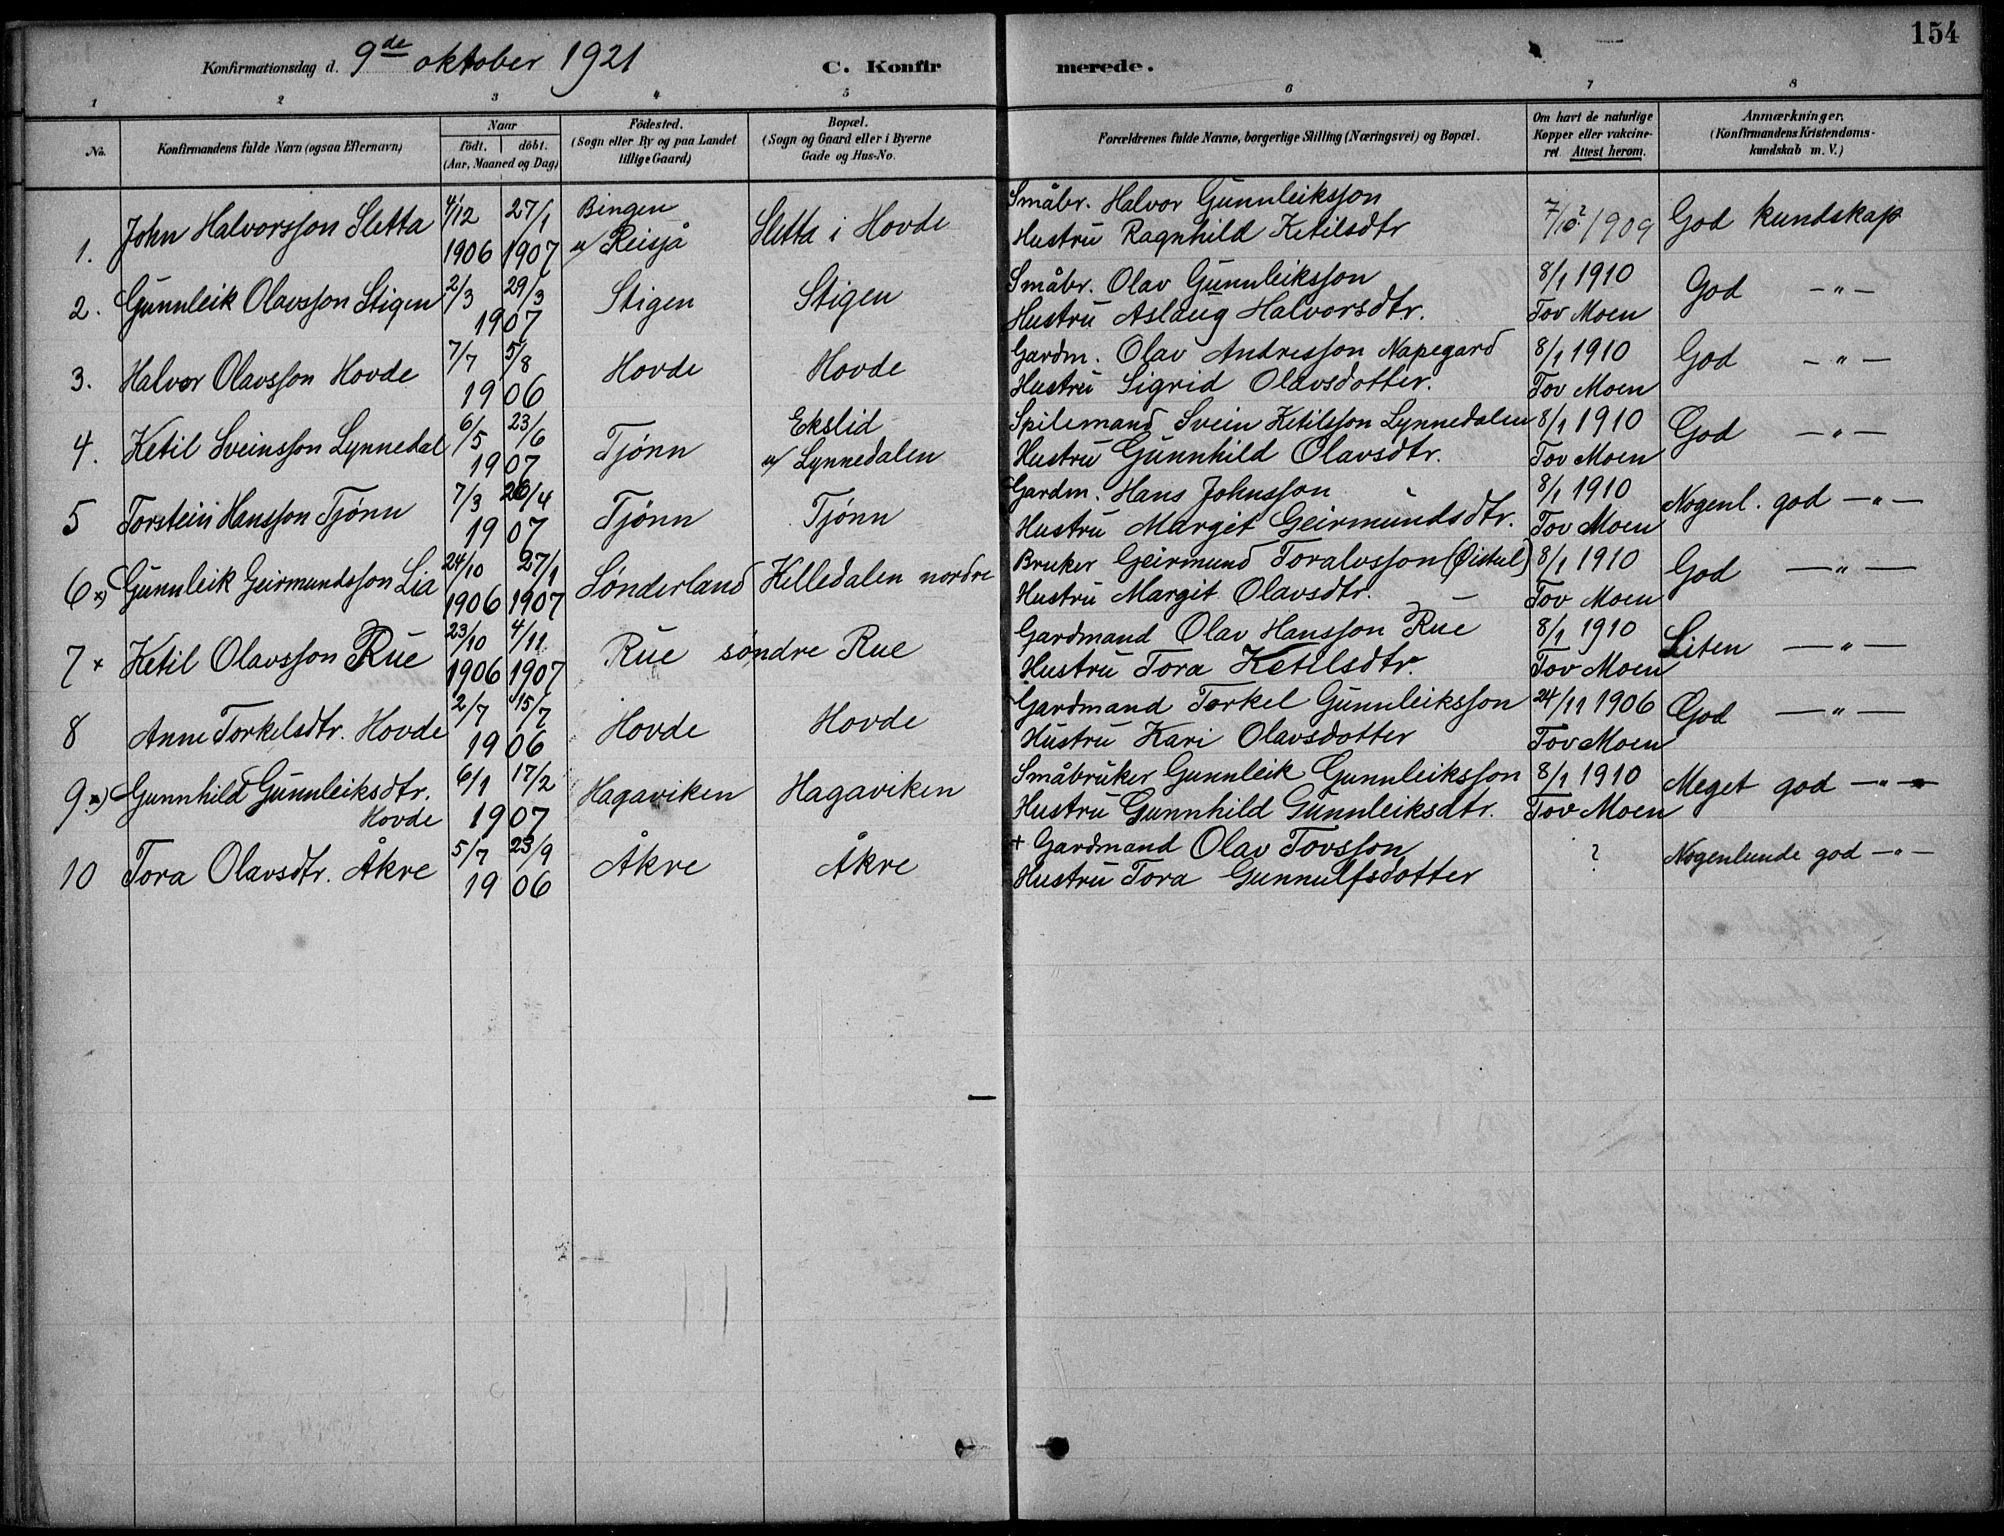 154
Konfirmationsdag d. 9de oktober 1921 C. Konfirmerede.
1 2 3 4 5 6 7 8
No.
Konfirmandens fulde Navn (ogsaa Efternavn)
Naar
födt. döbt.
(Aar, Maaned og Dag)
Födested.
(Sogn eller By og paa Landet
tillige Gaard)
Bopæl.
(Sogn og Gaard eller i Byerne
Gade og Hus-No.
Forældrenes fulde Navne, borgerlige Stilling (Næringsvei) og Bopæl.
Om havt de naturlige
Kopper eller vakcine-
ret Attest herom.
Anmærkninger.
(Konfirmandens Kristendoms-
kundskab m. V.)
1. John Halvorsson Sletta 4/12 1906 27/1 1907 Bingen u/ Reisjå Sletta i Hovde
Småbr. Halvor Gunnleiksson
Hustru Ragnhild Ketilsdtr
1909 God kundskap
2. Gunnleik Olavsson Stigen 2/3 29/3 1907 Stigen Stigen
Småbr. Olav Gunnleiksson
Hustru Aslaug Halvorsdtr.
8/1 1910
Tov Moen
God —"—
3. Halvor Olavsson Hovde 7/7 5/8 1906 Hovde Hovde
Gardm. Olav Andresson Napegard
Hustru Sigrid Olavsdotter.
8/1 1910
Tov Moen
God —"—
4. Ketil Sveinsson Lynnedal 6/5 23/6 1907 Tjønn Ekslid u/ Lynnedalen
Spilemand Svein Ketilsson Lynnedalen
Hustru Gunnhild Olavsdtr.
8/1 1910
Tov Moen
God —"—
5 Torstein Hansson Tjønn 7/3 26/4 1907 Tjønn Tjønn
Gardm. Hans Johnsson
Hustru Margit Geirmundsdtr.
8/1 1910
Tov Moen
Nogenl. god —"—
6 x) Gunnleik Geirmundsson Lia 24/10 1906 27/1 1907 Sønderland Killedalen nordre
Bruker Geirmund Toralvsson (Øistul)
Hustru Margit Olavsdtr.
8/1 1910
Tov Moen
God —"—
7 x Ketil Olavsson Rue 23/10 1906 4/11 1907 Rue søndre Rue
Gardmand Olav Hansson Rue
Hustru Tora Ketilsdtr.
8/1 1910
Tov Moen
Liten —"—
8 Anne Torkelsdtr. Hovde 2/7 15/7 1906 Hovde Hovde
Gardmand Torkel Gunnleiksson
Hustru Kari Olavsdotter
24/11 1906
Tov Moen
God —"—
9 x) Gunnhild Gunnleiksdtr. Hovde 6/1 17/2 1907 Hagaviken Hagaviken
Småbruker Gunnleik Gunnleiksson
Hustru Gunnhild Gunnleiksdtr.
8/1 1910
Tov Moen
Meget god —"—
10 Tora Olavsdtr. Åkre 5/7 23/9 1906 Åkre Åkre
+ Gardmand Olav Tovsson
Hustru Tora Gunnulfsdotter
?
Nogenlunde god —"—